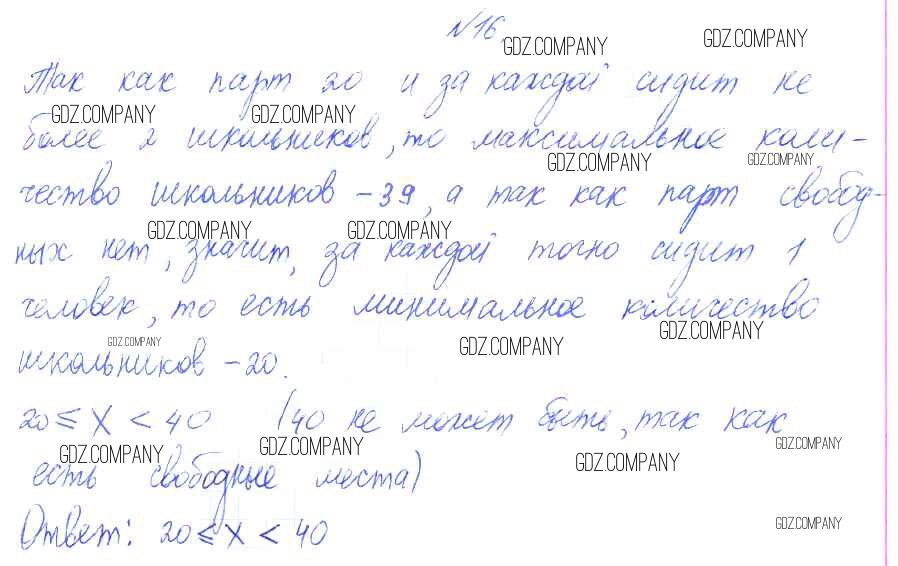 №16
GDZ.COMPANY GDZ.COMPANY
Так как парт 20 и за каждой сидит не
GDZ.COMPANY GDZ.COMPANY
более 2 школьников, то максимальное коли-
GDZ.COMPANY GDZ.COMPANY
чество школьников - 39, а так как парт свобод-
GDZ.COMPANY GDZ.COMPANY
ных нет, значит, за каждой точно сидит 1
человек, то есть минимальное количество
GDZ.COMPANY GDZ.COMPANY GDZ.COMPANY
школьников - 20.
20 ≤ x < 40 (40 не может быть, так как
GDZ.COMPANY GDZ.COMPANY GDZ.COMPANY GDZ.COMPANY
есть свободные места)
Ответ: 20 ≤ x < 40
GDZ.COMPANY